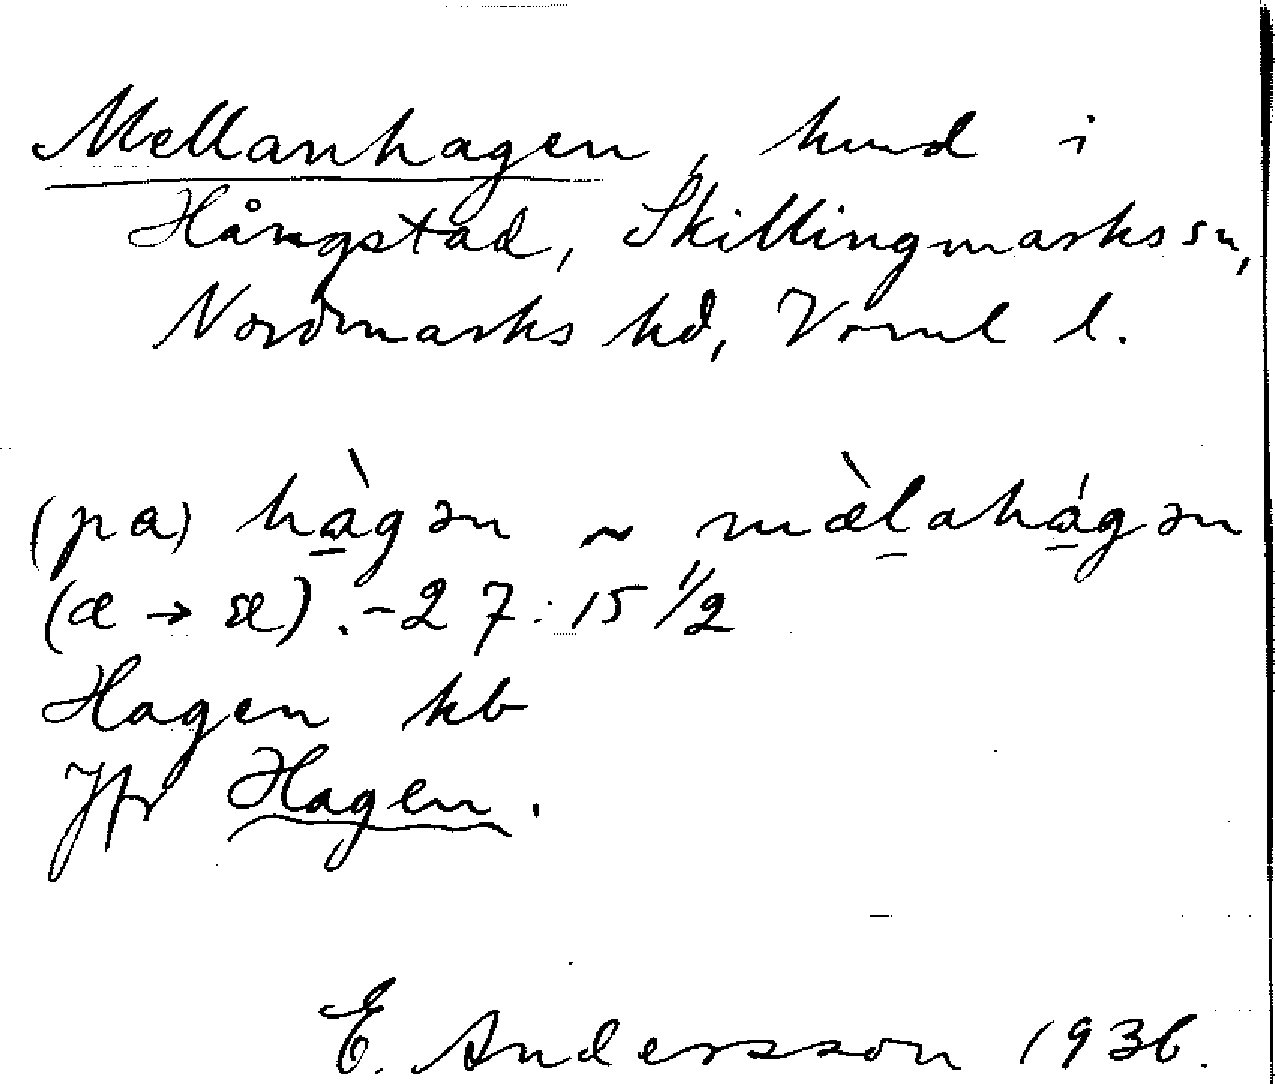 Mellanhagen, hmd i
Hångstad, Skillingmarks sn,
Nordmarks hd, Vrml l.
(pa) hà̱gən ~ mæ̀l̠ahá̱gən
(æ → æ). - 27: 15 1/2
Hagen kb
Jfr Hagen.
E. Andersson 1936.